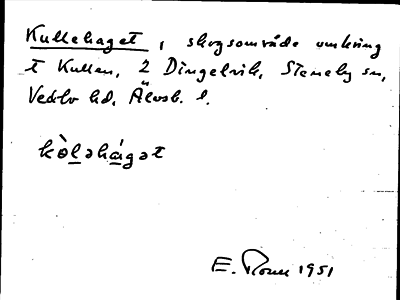 Kullehaget, skogsområde omkring
t Kullen, 2 Dingelvik, Steneby sn,
Vedbo hd, Älvsb. l.
kòləhágət
E. 1951